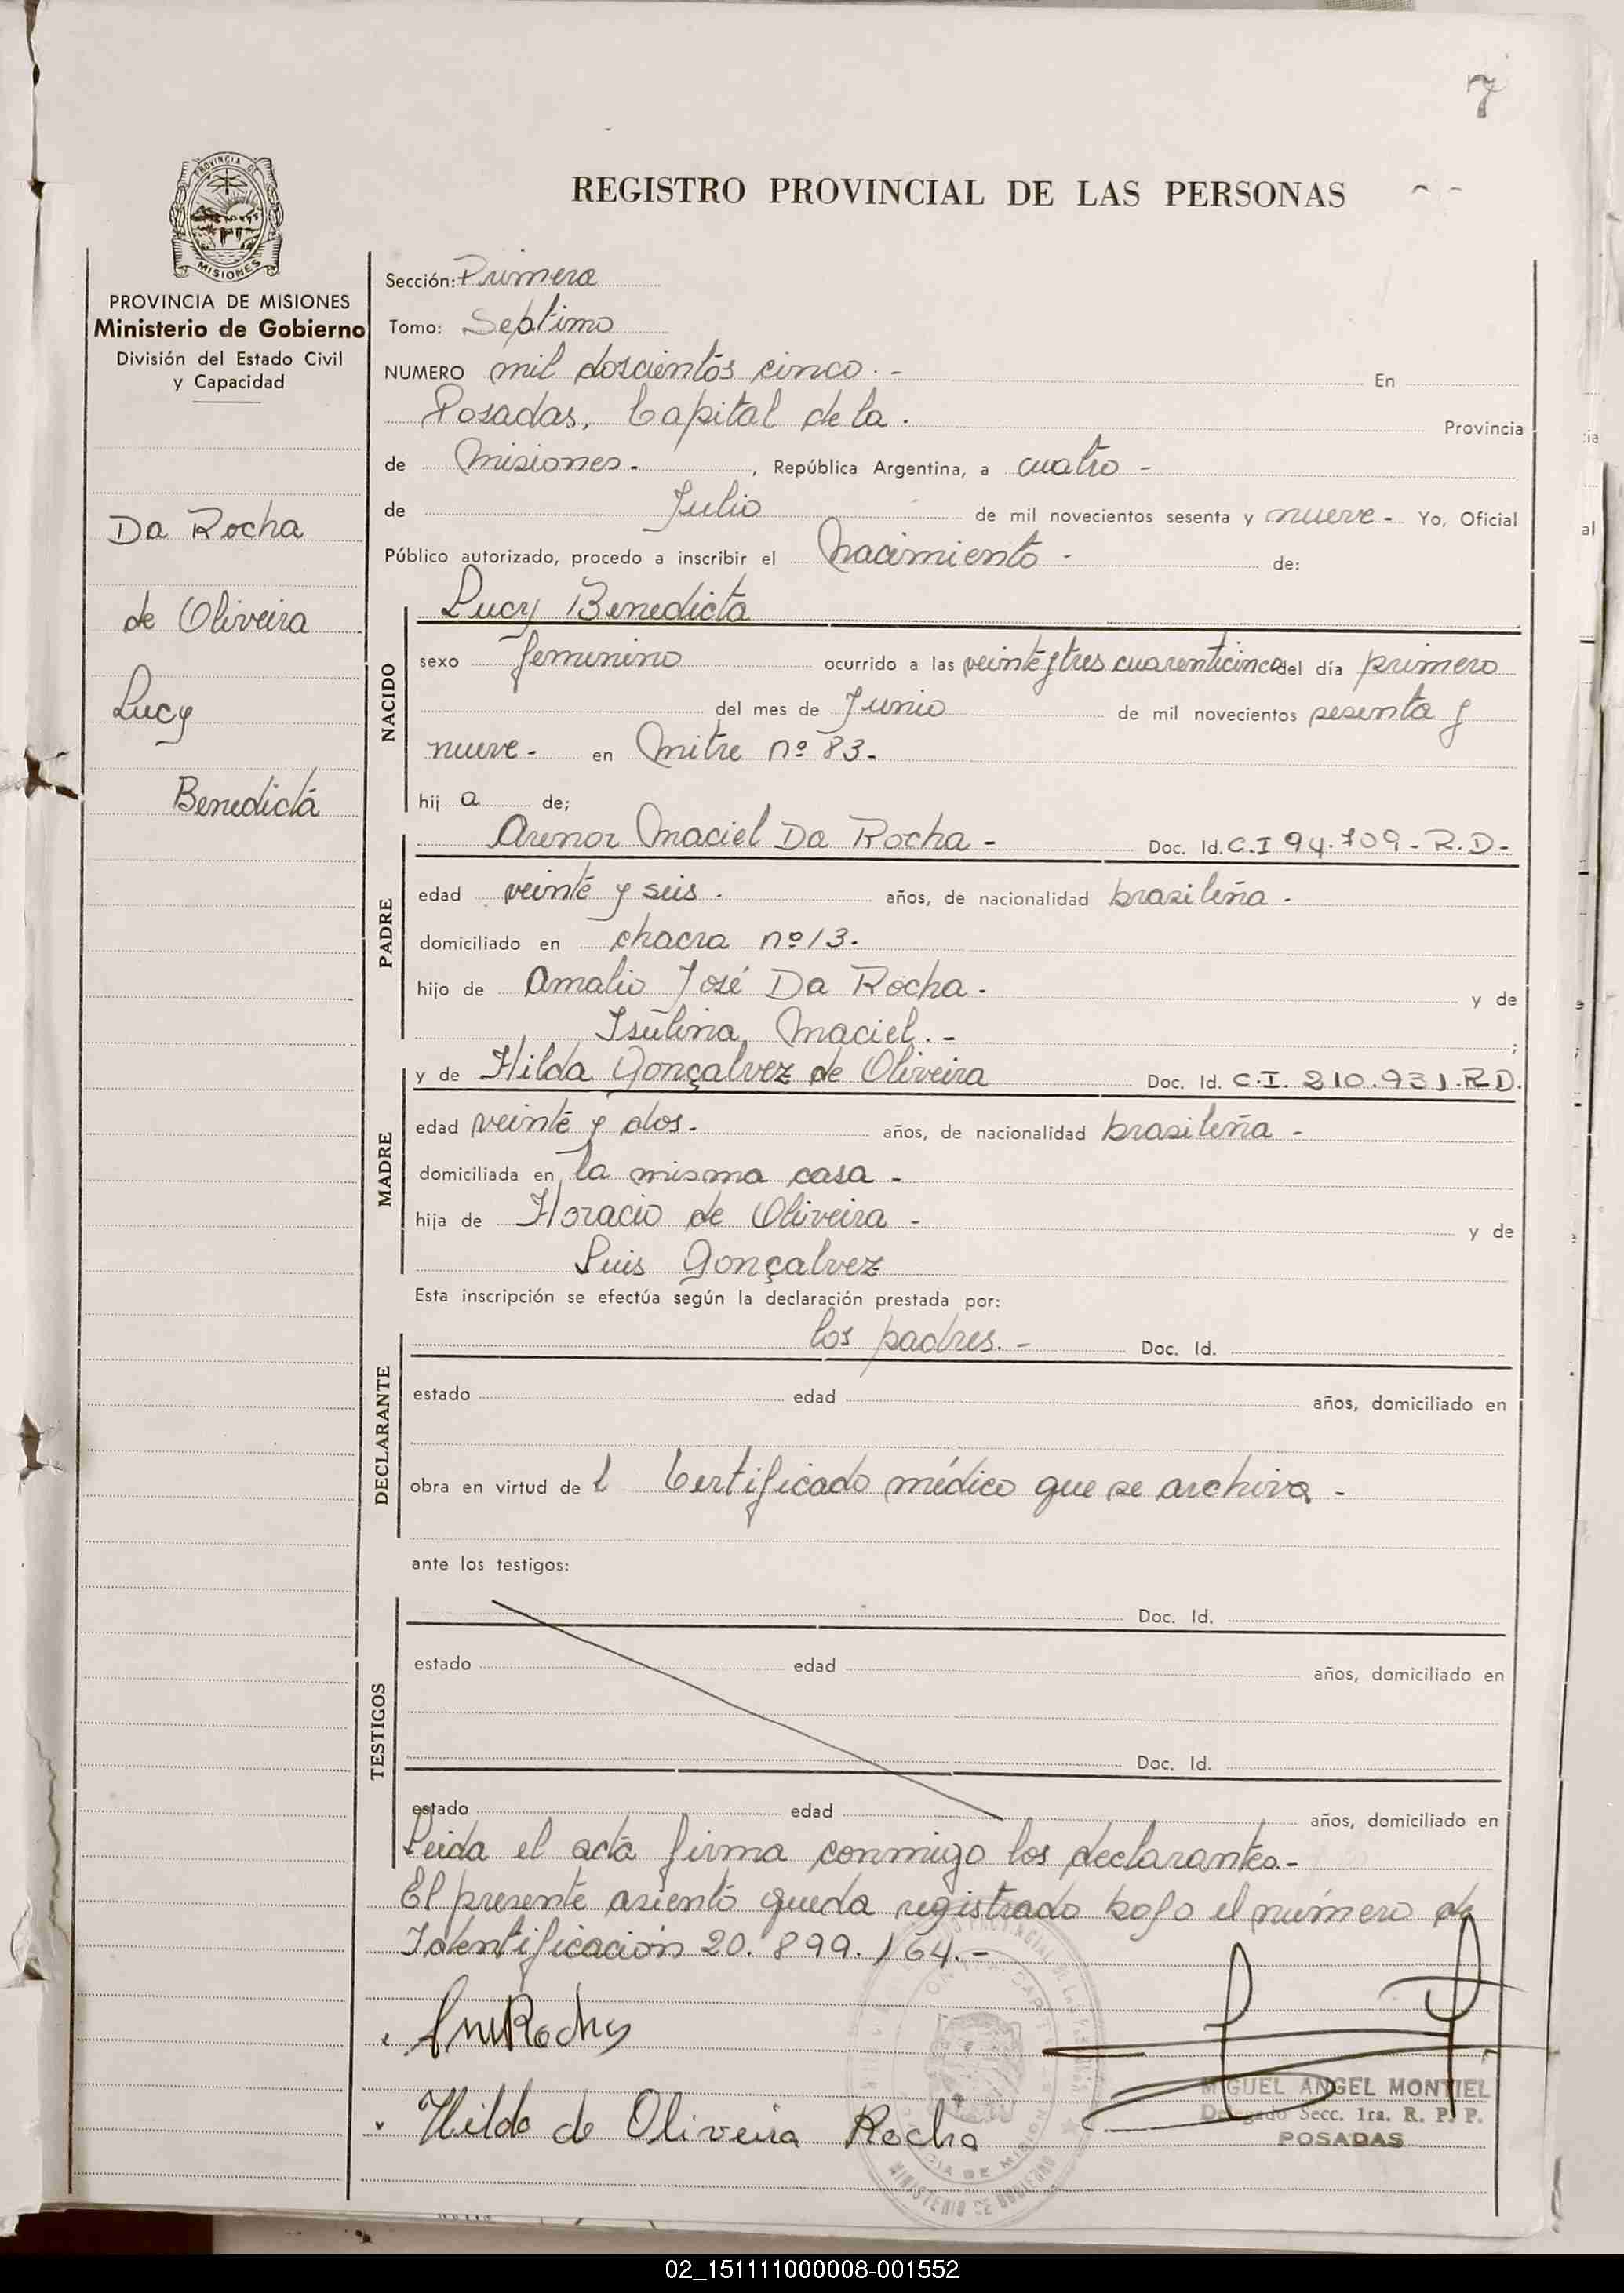 7
REGISTRO PROVINCIAL DE LAS PERSONAS
PROVINCIA DE MISIONES
Ministerio de Gobierno
División del Estado Civil
y Capacidad
Da Rocha
de Oliveira
Lucy
Benedicta
Sección: Primera
Tomo: Septimo
NUMERO mil doscientos cinco.- En
Posadas, Capital de la. Provincia
de Misiones.- , República Argentina, a cuatro -
de Julio de mil novecientos sesenta y nueve - Yo, Oficial
Público autorizado, procedo a inscribir el Nacimiento - de:
Lucy Benedicta
NACIDO
sexo femenino ocurrido a las veinte y tres cuarenticinco del día primero
del mes de Junio de mil novecientos sesenta y
nueve - en Mitre nº 83.-
hij a de;
PADRE
Arenor Maciel Da Rocha - Doc. Id. C.I 94.709 - R.D-
edad veinte y seis . años, de nacionalidad brasileña .
domiciliado en chacra nº 13.
hijo de Amalio José Da Rocha - y de
Isulina Maciel. - ;
MADRE
y de Hilda Gonçalvez de Oliveira Doc. Id. C.I. 210.931.R.D.
edad veinte y dos. años, de nacionalidad brasileña -
domiciliada en la misma casa -
hija de Horacio de Oliveira - y de
Luis Gonçalvez
Esta inscripción se efectúa según la declaración prestada por:
DECLARANTE
los padres. - Doc. Id.
estado edad años, domiciliado en
obra en virtud de l Certificado médico que se archiva -
ante los testigos:
TESTIGOS
Doc. Id.
estado edad años, domiciliado en
Doc. Id.
estado edad años, domiciliado en
Leida el acta firma conmigo los declarantes.-
El presente asiento queda registrado bajo el número de
Identificación 20.899.164.-
Hilda de Oliveira Rocha
MIGUEL ANGEL MONTIEL
Delegado Secc. 1ra. R. P. P.
POSADAS
MINISTERIO DE GOBIERNO
02_151111000008-001552